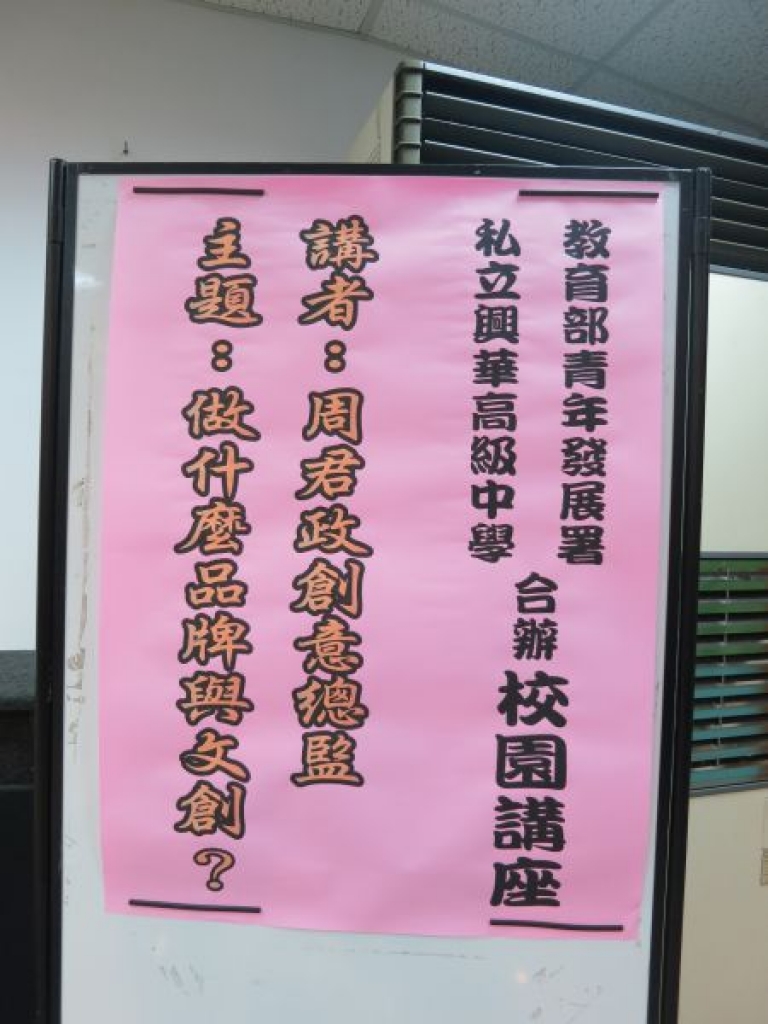 教育部青年發展署
私立興華高級中學
合辦校園講座
講者：周君政創意總監
主題：做什麼品牌與文創？